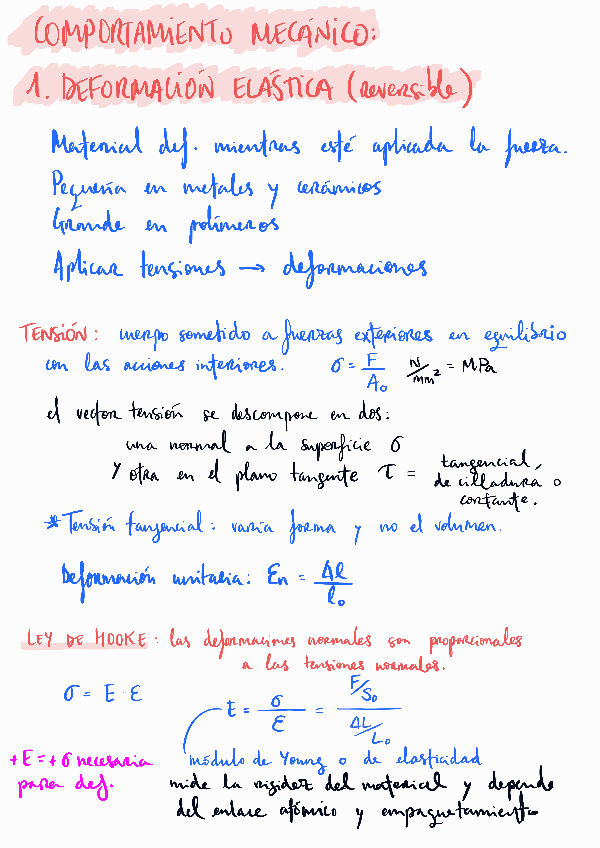 COMPORTAMIENTO MECÁNICO:
1. DEFORMACIÓN ELÁSTICA (reversible)
Material def. mientras esté aplicada la fuerza.
Pequeña en metales y cerámicos
Grande en polímeros
Aplicar tensiones → deformaciones
TENSIÓN: cuerpo sometido a fuerzas exteriores en equilibrio
con las acciones interiores. σ = F/A₀ N/mm² = MPa
el vector tensión se descompone en dos:
una normal a la superficie σ
y otra en el plano tangente τ = tangencial,
de cilladura o
cortante.
* Tensión tangencial: varía forma y no el volumen.
Deformación unitaria: εn = Δl/l₀
LEY DE HOOKE: las deformaciones normales son proporcionales
a las tensiones normales.
σ = E · ε
E = σ/ε = (F/S₀)/(ΔL/L₀)
módulo de Young o de elasticidad
+E = +σ necesaria
para def.
mide la rigidez del material y depende
del enlace atómico y empaquetamiento